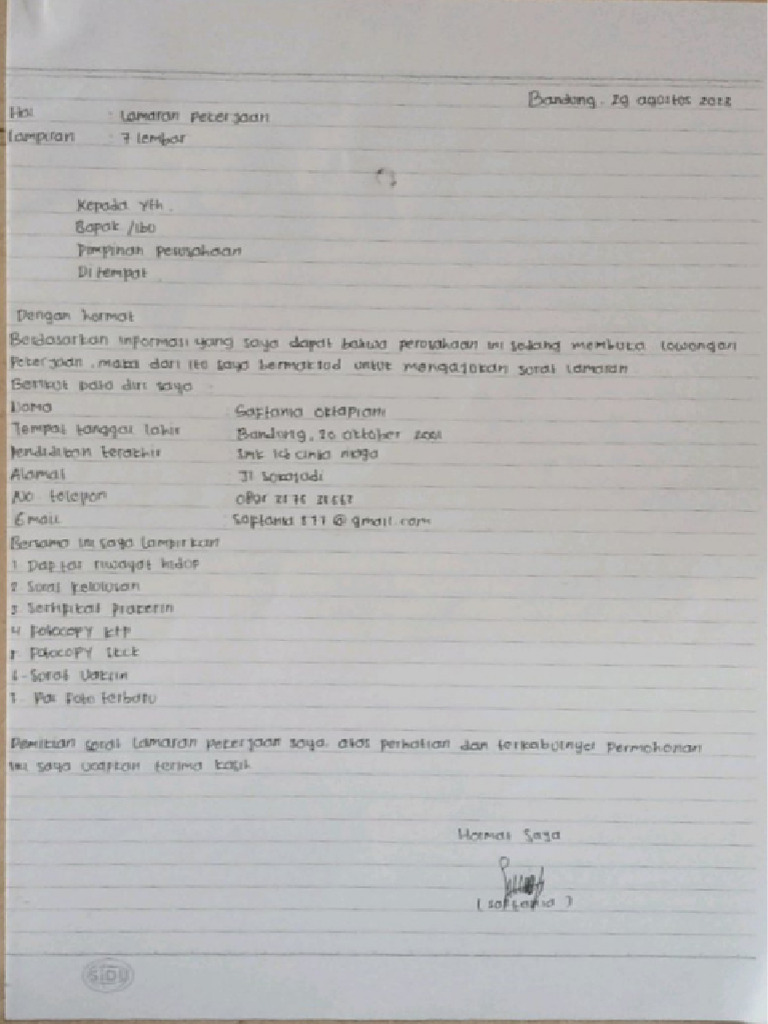 Bandung, 29 agostos 2022
Hal : Lamaran pekerjaan
Lampiran : 7 lembar
Kepada Yth.
Bapak /ibo
Pimpinan perosahaan
Di tempat
Dengan hormat
Berdasarkan informasi yang saya dapat bahwa perosahaan ini sedang membuka lowongan
Pekerjaan, maka dari ito saya bermaksod untuk mengajokan sorat lamaran
Berikut data diri saya
Nama : Saftania oktapiani
Tempat tanggal lahir : Bandung, 20 oktober 2001
Pendidikan terakhir : Smk cinta niaga
Alamat : Jl sokajadi
No telepon
Email : @gmail.com
Bersama ini saya lampirkan
1 Daptar riwayat hidop
2 Sorat kelolosan
3 Sertipikat pracerin
4 Potocopy ktp
5 Potocopy skck
6 - Sorat Vaksin
7 Pas Foto terbaru
Demikian sorat lamaran pekerjaan saya. atas perhatian dan terkabulnya permohonan
ini saya ucapkan terima kasih
Hormat Saya
( saftania )
SIDU